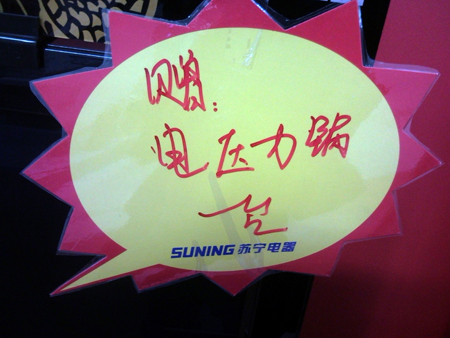 赠:
电压力锅
一台
SUNING 苏宁电器